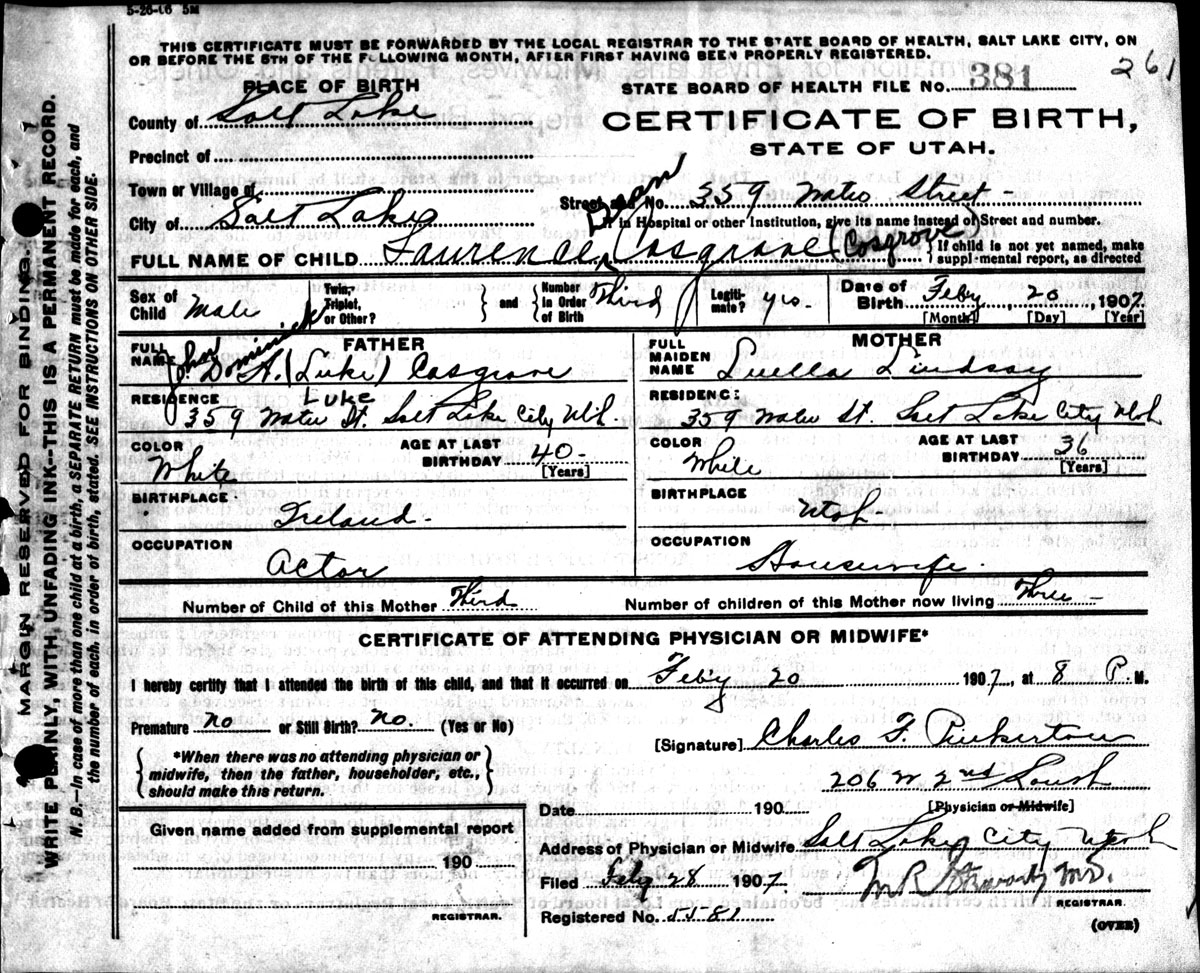 5-26-06 5M
THIS CERTIFICATE MUST BE FORWARDED BY THE LOCAL REGISTRAR TO THE STATE BOARD OF HEALTH, SALT LAKE CITY, ON
OR BEFORE THE 5TH OF THE FOLLOWING MONTH, AFTER FIRST HAVING BEEN PROPERLY REGISTERED.
261
PLACE OF BIRTH
STATE BOARD OF HEALTH FILE NO. 381
County of Salt Lake
CERTIFICATE OF BIRTH,
STATE OF UTAH.
Precinct of
Town or Village of
Street and No. 359 Water Street
City of Salt Lake
If in Hospital or other Institution, give its name instead of Street and number.
FULL NAME OF CHILD Laurence Cosgrove (Cosgrove)
If child is not yet named, make
supplemental report, as directed
Sex of Child Male
Twin, Triplet, or Other?
and
Number in Order of Birth Third
Legitimate? yes
Date of Birth Feby 20 1907
[Month] [Day] [Year]
FATHER
FULL NAME John Dominick D. A. (Luke) Cosgrove
Luke
RESIDENCE 359 Water St. Salt Lake City Utah
COLOR White
AGE AT LAST BIRTHDAY 40
[Years]
BIRTHPLACE Ireland
OCCUPATION Actor
MOTHER
FULL MAIDEN NAME Luella Lindsay
RESIDENCE 359 Water St. Salt Lake City Utah
COLOR White
AGE AT LAST BIRTHDAY 36
[Years]
BIRTHPLACE Utah
OCCUPATION Housewife.
Number of Child of this Mother Third
Number of children of this Mother now living Three
CERTIFICATE OF ATTENDING PHYSICIAN OR MIDWIFE*
I hereby certify that I attended the birth of this child, and that it occurred on Feby 20 1907, at 8 P. M.
Premature no or Still Birth? no. (Yes or No)
[Signature] Charles F. Pinkerton
*When there was no attending physician or
midwife, then the father, householder, etc.,
should make this return.
206 W 2nd South
Date 190
[Physician or Midwife]
Given name added from supplemental report
190
REGISTRAR.
Address of Physician or Midwife Salt Lake City Utah
Filed Feby 28 1907.
M R Stewart M.D.
REGISTRAR.
Registered No. 5581
(OVER)
MARGIN RESERVED FOR BINDING.
WRITE PLAINLY, WITH UNFADING INK--THIS IS A PERMANENT RECORD.
N. B.--In case of more than one child at a birth, a SEPARATE RETURN must be made for each, and
the number of each, in order of birth, stated. SEE INSTRUCTIONS ON OTHER SIDE.